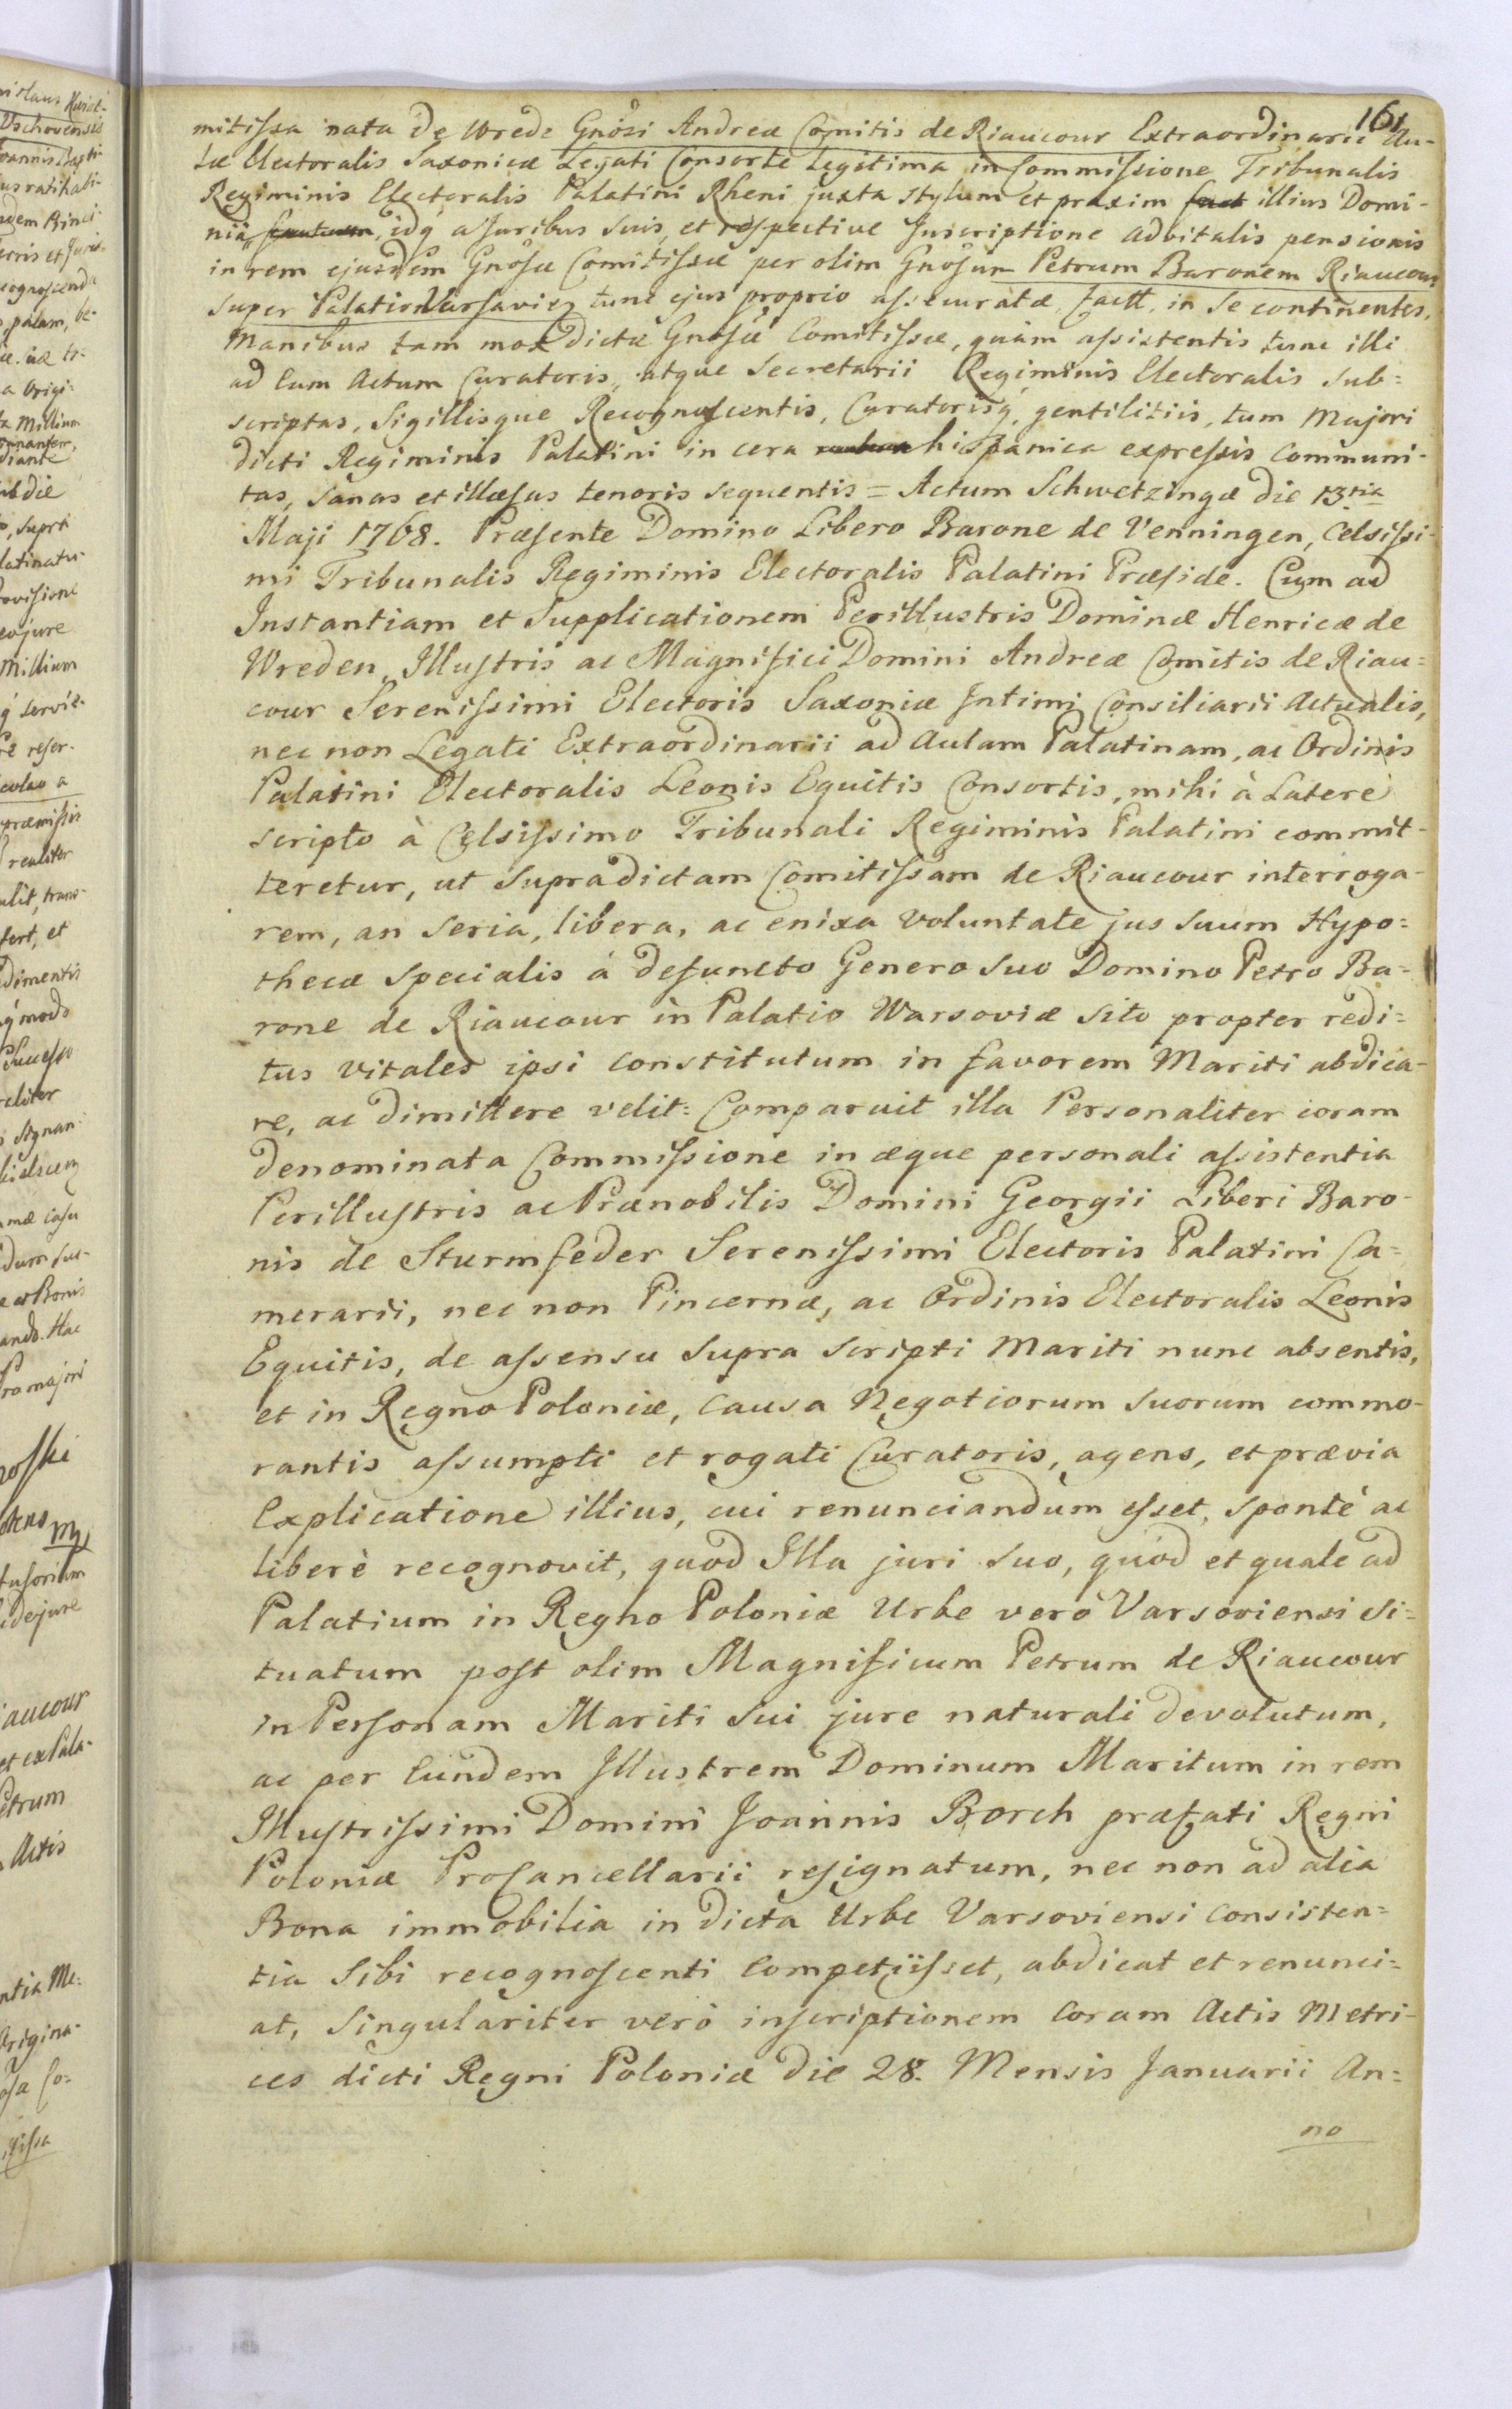 161
mitiſsa nata de Wrede Gnosi Andreæ Comitis de Riaucour Extraordinarii Au-
læ Electoralis Saxonicæ Legati Consorte legitima in Commiſsione Tribunalis
Regiminis Electoralis Palatini Rheni juxta stylum et praxim illius Domi-
nii, idq a Juribus suis, et respective Inscriptione advitalis pensionis
in rem ejusdem Gnosæ Comitiſsæ per olim Gnosum Petrum Baronem Riaucour
super Palatio Varsaviæ tunc ejus proprio aſsecuratæ, factt, in se continentes,
Manibus tam mox dictæ Gnosæ Comitiſsæ, quàm aſsistentis tunc illi
ad Eum Actum Curatoris, atque Secretarii Regiminis Electoralis sub=
scriptas, Sigillisque Recognoſcentis, Curatorisq, gentilitiis, tum Majori
dicti Regiminis Palatini in cera hispanica expreſsis communi-
tas, sanas et illæsas tenoris sequentis = Actum Schwetzingæ die 13tia
Maji 1768. Præſente Domino Libero Barone de Venningen, Celsiſsi-
mi Tribunalis Regiminis Electoralis Palatini Præſide. Cum ad
Instantiam et Supplicationem Perillustris Dominæ Henricæ de
Wreden, Illuſtris ac Magnifici Domini Andreæ Comitis de Riau=
cour Sereniſsimi Electoris Saxoniæ Intimi Consiliarii Actualis,
nec non Legati Extraordinarii ad Aulam Palatinam, ac Ordinis
Palatini Electoralis Leonis Equitis Consortis, mihi à Latere
scripto à Celsiſsimo Tribunali Regiminis Palatini commit-
teretur, ut supradictam Comitiſsam de Riaucour interroga-
rem, an seria, libera, ac enixa voluntate jus suum Hypo=
thecæ specialis à defuncto Genero suo Domino Petro Ba-
rone de Riaucour in Palatio Warsoviæ sito propter redi=
tus vitales ipsi constitutum in favorem Mariti abdica-
re, ac dimittere velit: Comparuit illa Personaliter coram
denominata Commiſsione in æque personali aſsistentia
Perilluſtris ac Prænobilis Domini Georgii Liberi Baro-
nis de Sturmfeder Sereniſsimi Electoris Palatini Ca=
merarii, nec non Pincernæ, ac Ordinis Electoralis Leonis
Equitis, de aſsensu supra scripti Mariti nunc absentis,
et in Regno Poloniæ, causa Negotiorum suorum commo-
rantis aſsumpti et rogati Curatoris, agens, et prævia
Explicatione illius, cui renunciandum eſset, sponté ac
liberè recognovit, quod Illa juri suo, quòd et quale ad
Palatium in Regno Poloniæ Urbe verò Varsoviensi si=
tuatum poſt olim Magnificum Petrum de Riaucour
in Perſonam Mariti sui jure naturali devolutum,
ac per Eundem Illustrem Dominum Maritum in rem
Illuſtriſsimi Domini Joannis Borch præfati Regni
Poloniæ ProCancellarii reſignatum, nec non ad alia
Bona immobilia in dicta Urbe Varsoviensi consisten=
tia Sibi recognoſcenti competiiſset, abdicat et renunci=
at, singulariter verò inſcriptionem coram Actis Metri-
ces dicti Regni Poloniæ die 28. Mensis Januarii An=
no